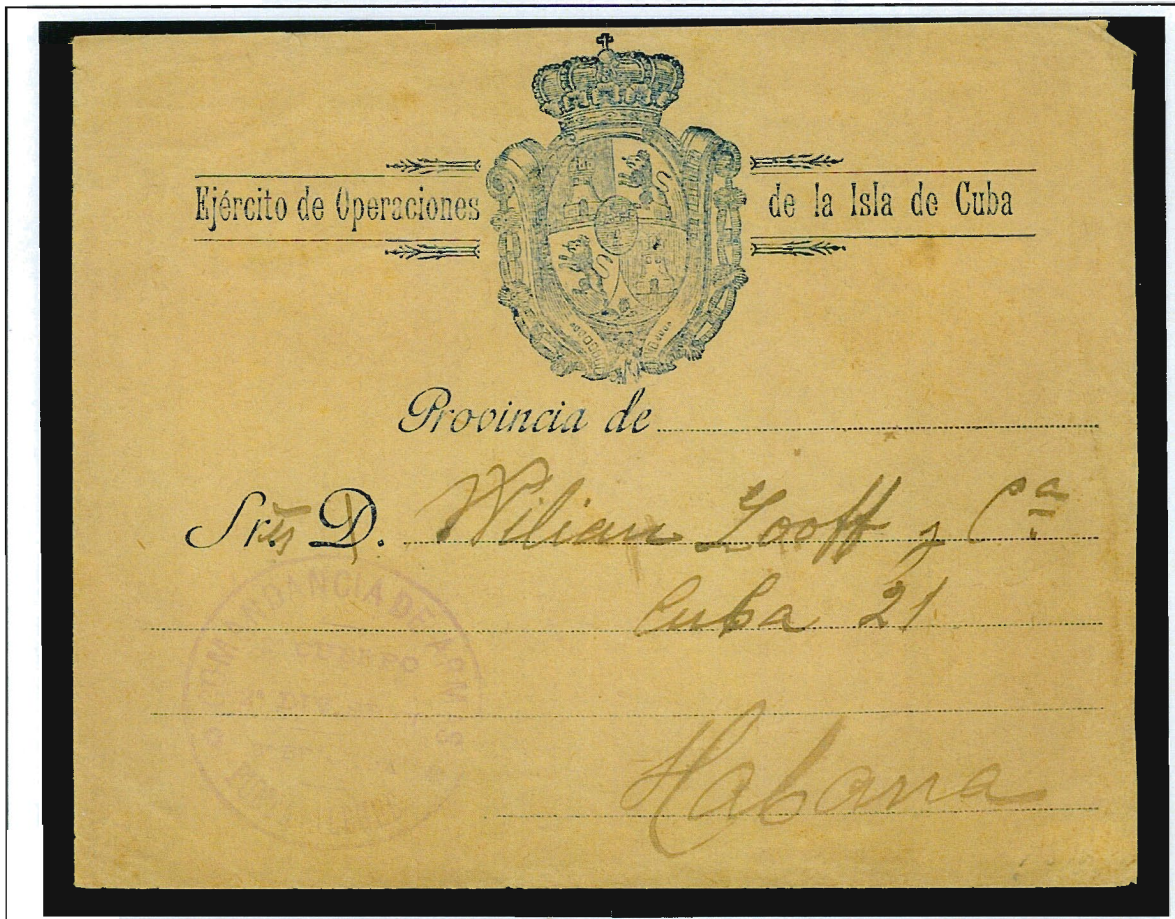 Ejército de Operaciones de la Isla de Cuba
Provincia de
Sr. D. Wilian Looff y Cª
Cuba 21
Habana
COMANDANCIA DE ARMAS
CUERPO